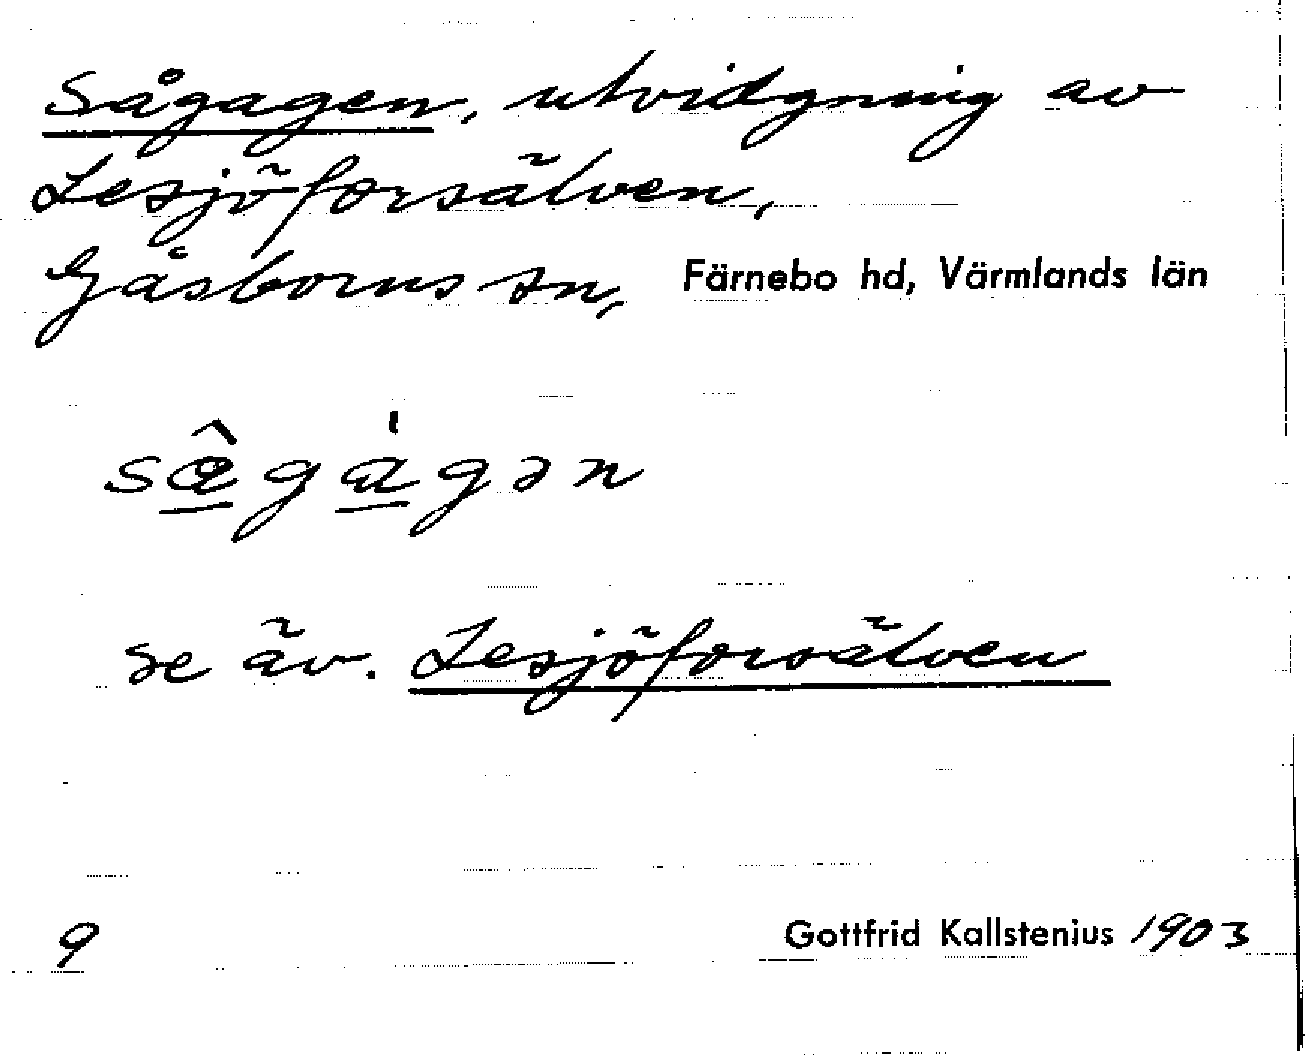 Sågagen, utvidgning av
Lesjöforsälven,
Gåsborns sn, Färnebo hd, Värmlands län
gagən
se äv. Lesjöforsälven
9 Gottfrid Kallstenius 1903